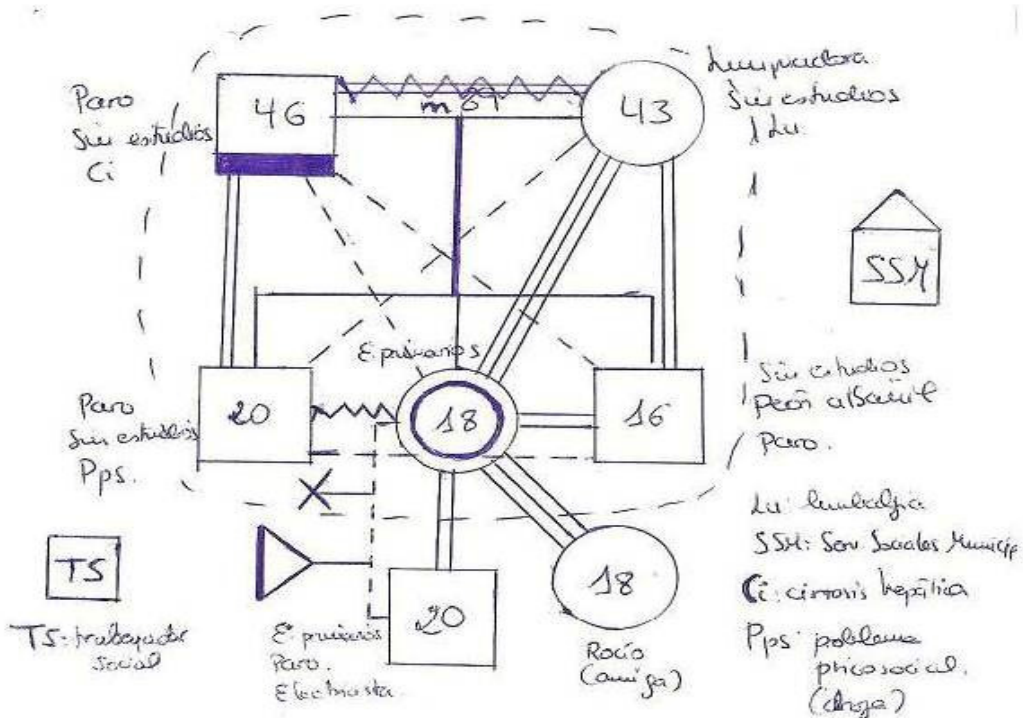 Paro
Sin estudios
Ci
46
m 89
43
Limpiadora
Sin estudios
Lu
SSM
E. primarios
Paro
Sin estudios
Pps.
20
18
16
Sin estudios
Peón albañil
Paro.
TS
TS: trabajador
social
E. primarios
Paro.
Electricista
20
18
Rocío
(amiga)
Lu: lumbalgia
SSM: Serv Sociales Municip
Ci: cirrosis hepática
Pps: problema
psicosocial.
(droga)